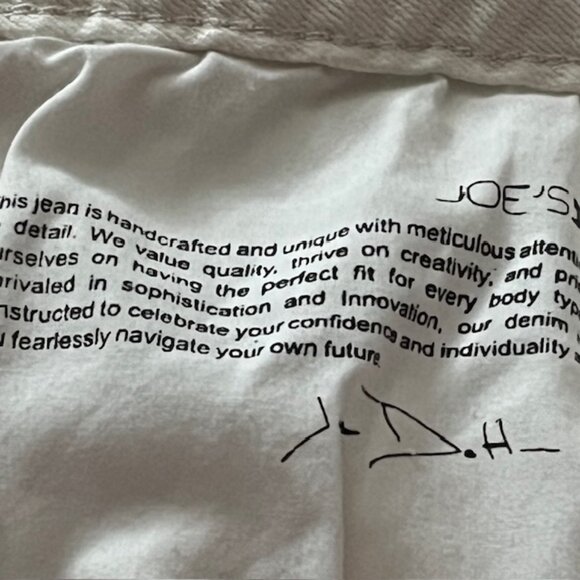 JOE'S
his jean is handcrafted and unique with meticulous attent
detail. We value quality, thrive on creativity, and pri
urselves on having the perfect fit for every body typ
rivaled in sophistication and Innovation, our denim
nstructed to celebrate your confidence and individuality
u fearlessly navigate your own future
J. D.H